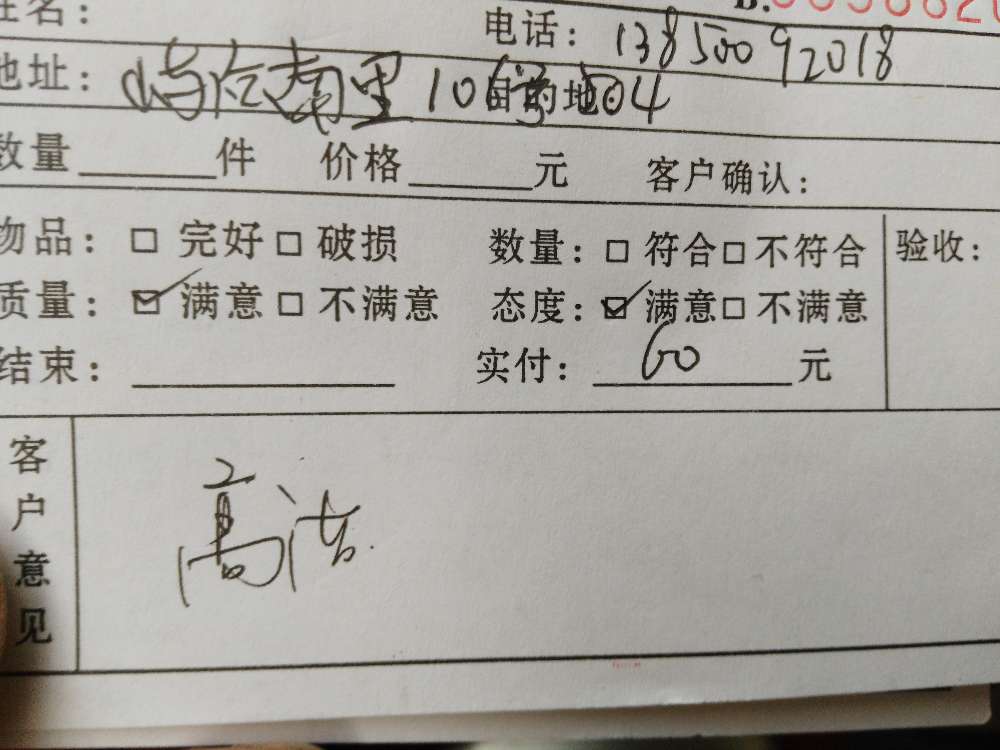 姓名： 电话：13850092018
地址：屿后南里10 目的地：504
数量 件 价格 元 客户确认：
物品：□ 完好 □ 破损 数量：□ 符合 □ 不符合 验收：
质量：☑ 满意 □ 不满意 态度：☑ 满意 □ 不满意
结束： 实付：60 元
客户意见
高洁